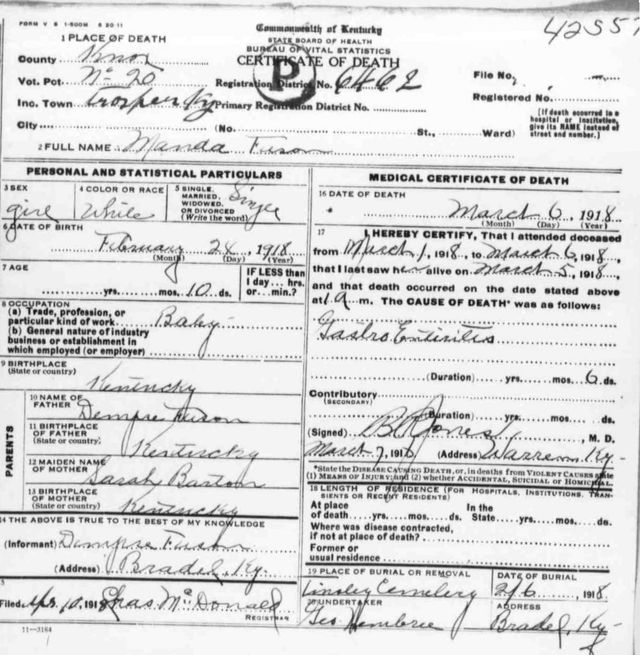 FORM V S 1-500M 8 20 11
42557
Commonwealth of Kentucky
STATE BOARD OF HEALTH
BUREAU OF VITAL STATISTICS
CERTIFICATE OF DEATH
P
1 PLACE OF DEATH
County Knox
Vot. Pct No 20 Registration District No. 6462 File No.
Inc. Town Trosper Ky Primary Registration District No. Registered No.
City (No. St., Ward) [If death occurred in a hospital or institution, give its NAME instead of street and number.]
2 FULL NAME Manda Fuson
PERSONAL AND STATISTICAL PARTICULARS
3 SEX girl
4 COLOR OR RACE White
5 SINGLE, MARRIED, WIDOWED, OR DIVORCED (Write the word) Single
6 DATE OF BIRTH
February 24, 1918
(Month) (Day) (Year)
7 AGE
yrs. mos. 10 ds.
IF LESS than 1 day ... hrs. or ... min.?
8 OCCUPATION
(a) Trade, profession, or particular kind of work Baby
(b) General nature of industry business or establishment in which employed (or employer)
9 BIRTHPLACE (State or country) Kentucky
PARENTS
10 NAME OF FATHER Dempse Fuson
11 BIRTHPLACE OF FATHER (State or country) Kentucky
12 MAIDEN NAME OF MOTHER Sarah Barton
13 BIRTHPLACE OF MOTHER (State or country) Kentucky
14 THE ABOVE IS TRUE TO THE BEST OF MY KNOWLEDGE
(Informant) Dempse Fuson
(Address) Ky.
Filed Apr 10, 1918 Chas McDonald
REGISTRAR
11-3164
MEDICAL CERTIFICATE OF DEATH
16 DATE OF DEATH
March 6, 1918
(Month) (Day) (Year)
17 I HEREBY CERTIFY, That I attended deceased
from March 1, 1918, to March 6, 1918,
that I last saw her alive on March 5, 1918,
and that death occurred on the date stated above
at 1 a m. The CAUSE OF DEATH* was as follows:
Gastro Enteritis
(Duration) yrs. mos. 6 ds.
Contributory
(SECONDARY)
(Duration) yrs. mos. ds.
(Signed) Jones, M. D.
March 7, 1918 (Address) Warren, Ky-
*State the DISEASE CAUSING DEATH, or, in deaths from VIOLENT CAUSES state (1) MEANS OF INJURY; and (2) whether ACCIDENTAL, SUICIDAL or HOMICIDAL.
18 LENGTH OF RESIDENCE (FOR HOSPITALS, INSTITUTIONS, TRANSIENTS OR RECENT RESIDENTS)
At place of death yrs. mos. ds. In the State yrs. mos. ds.
Where was disease contracted, if not at place of death?
Former or usual residence
19 PLACE OF BURIAL OR REMOVAL
Cemetery
DATE OF BURIAL
, 1918
20 UNDERTAKER
Geo Hembree
ADDRESS
Ky-